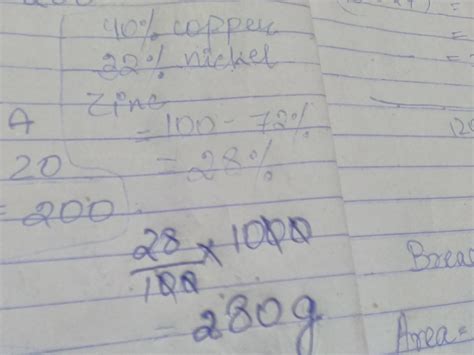 40% copper
22% nickel
Zinc
= 100 - 72%
= 28%
A
20
= 200
28/100 × 1000
= 280g
Area=